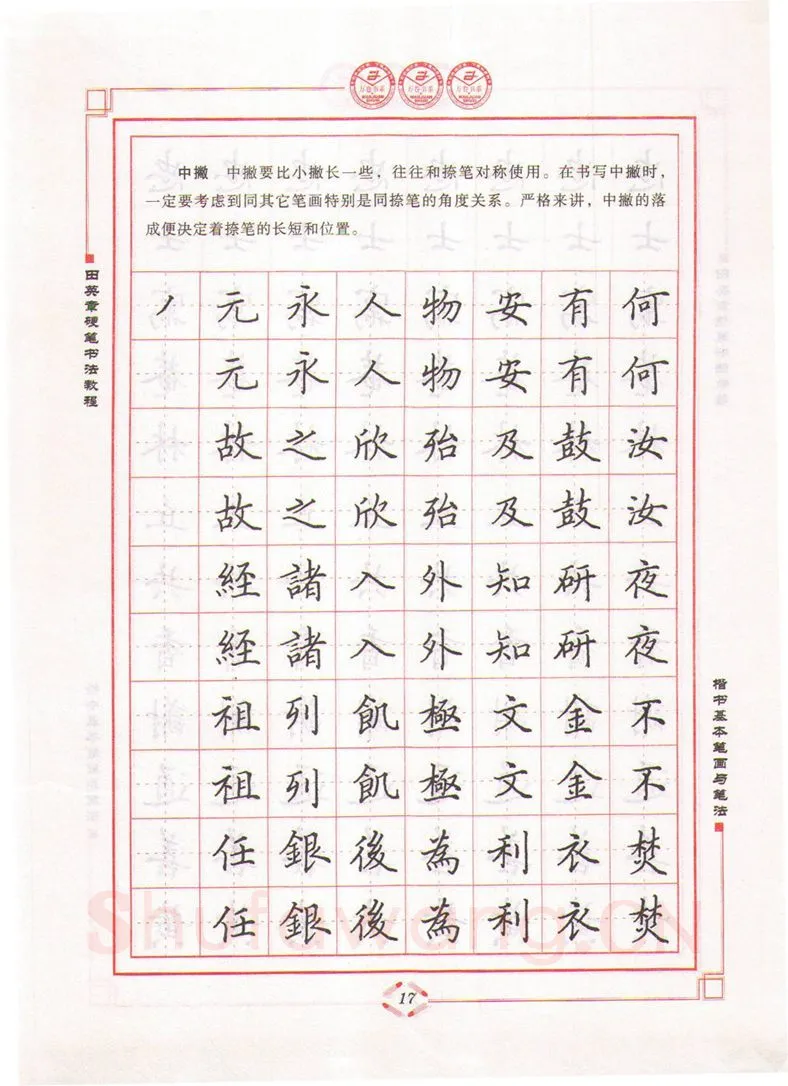 中撇　中撇要比小撇长一些，往往和捺笔对称使用。在书写中撇时，
一定要考虑到同其它笔画特别是同捺笔的角度关系。严格来讲，中撇的落
成便决定着捺笔的长短和位置。
田英章硬笔书法教程
丿 元 永 人 物 安 有 何
元 永 人 物 安 有 何
故 之 欣 殆 及 鼓 汝
故 之 欣 殆 及 鼓 汝
經 諸 入 外 知 研 夜
經 諸 入 外 知 研 夜
祖 列 飢 極 文 金 不
祖 列 飢 極 文 金 不
任 銀 後 為 利 衣 焚
任 銀 後 為 利 衣 焚
楷书基本笔画与笔法
Shufawang.CN
17